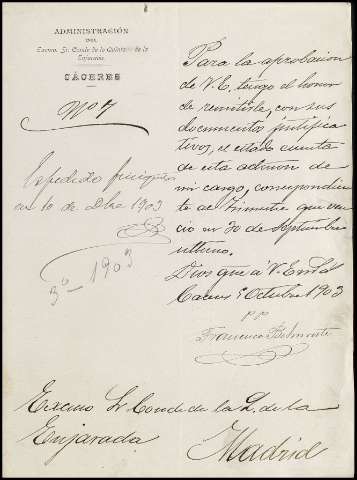 ADMINISTRACIÓN
DEL
Excmo. Sr. Conde de la Quinta de la
Enjarada
CÁCERES
Nº 7
Para la aprobacion
de V. E. tengo el honor
de remitirle, con sus
documentos justifica
tivos, el estado cuenta
de esta admon de
mi cargo, correspondien
te al trimestre que ven
cio en 30 de Septiembre
ultimo.
Dios gue á V. E. m. a.
Caceres 5 Octubre 1903
p p
Francisco Belmonte
Expedido finiquito
en 10 de Dbre 1903
3º - 1903
Excmo Sr Conde de la Q. de la
Enjarada
Madrid